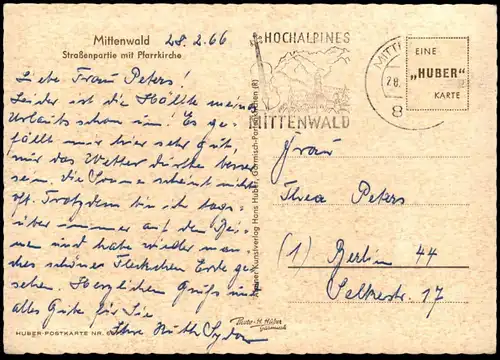 Mittenwald 28.2.66
Straßenpartie mit Pfarrkirche
Liebe Frau Peters!
Leider ist die Hälfte meines
Urlaubs schon um. Es ge-
fällt mir hier sehr gut,
nur das Wetter dürfte besser
sein. die Sonne scheint nicht
oft. Trotzdem bin ich tags-
über immer auf den Bei-
nen und habe wieder man-
ches schönes Fleckchen Erde ge-
sehen. Herzlichen Gruß und
alles Gute für Sie
Ihre Ruth
HUBER-POSTKARTE NR.
Photo-H. Huber
Garmisch
Kunstverlag Hans Huber, Garmisch-Partenkirchen (R)
HOCHALPINES
MITTENWALD
28.
8
EINE
„HUBER“
KARTE
Frau
Thea Peters
(1) Berlin 44
17